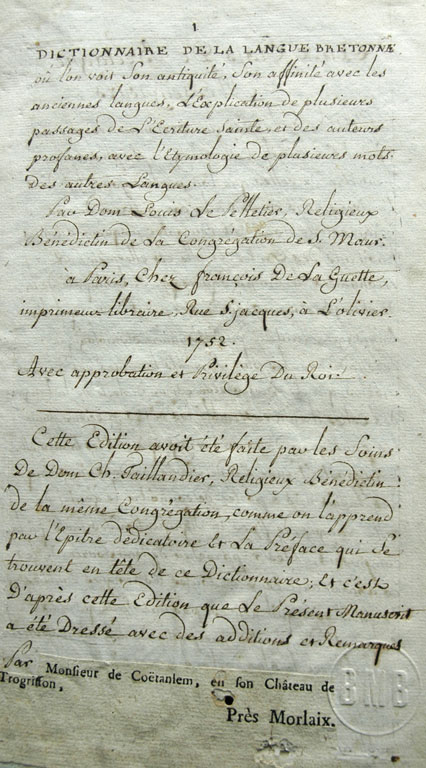 1
DICTIONNAIRE DE LA LANGUE BRETONNE,
où l'on voit Son antiquité, Son affinité avec les
anciennes langues, L'explication de plusieurs
passages de L'Ecriture Sainte, et des auteurs
profanes, avec l'Etymologie de plusieurs mots
des autres Langues.
Par Dom Louis Le Pelletier, Religieux
Bénédictin de La Congrégation de S. Maur.
à Paris, Chez françois De La Guette,
imprimeur libraire, Rue S. jacques, à L'olivier.
1752.
Avec approbation et Privilége Du Roi.
Cette Edition avoit été faite par les Soins
De Dom Ch. Taillandier, Religieux Bénédictin
de la même Congrégation, comme on l'apprend
par l'Epitre dédicatoire Et La Préface qui Se
trouvent en tête de ce Dictionnaire; Et c'est
D'après cette Edition que Le Présent Manuscrit
a été Dressé avec des additions et Remarques
Par Monsieur de Coëtanlem, en son Château de
Trogriffon,
Près Morlaix.
BMB